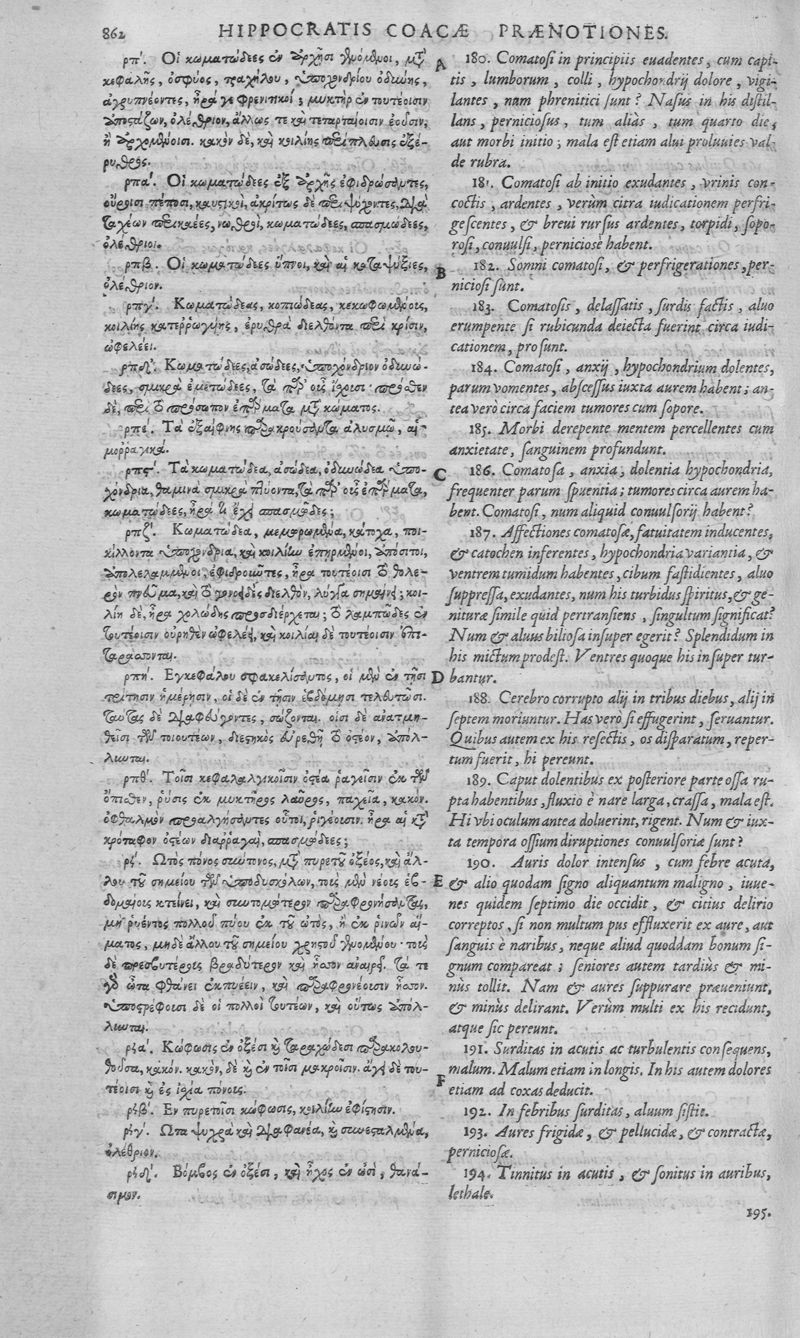 862 HIPPOCRATIS COACÆ PRÆNOTIONES.
ρπʹ. Οἱ κωματώδεες ἐν ἀρχῆσι γενόμενοι, μετὰ
κεφαλῆς, ὀσφύος, τραχήλου, ὑποχονδρίου ὀδύνης,
ἀγρυπνέοντες, ἦρά γε φρενιτικοί; μυκτὴρ ἐν τουτέοισιν
ἀποστάζων, ὀλέθριον, ἄλλως τε καὶ τεταρταίοισιν ἐοῦσιν,
ἢ ἀρχομένοισι. κακὸν δὲ, καὶ κοιλίης περίπλυσις ἐξέ-
ρυθρος.
ρπαʹ. Οἱ κωματώδεες ἐξ ἀρχῆς ἐφιδρώσαντες,
οὔροισι πέποσι, καυστικοὶ, ἀκρίτως δὲ περιψύχοντες, διὰ
ταχέων περικαέες, νωθροὶ, κωματώδεες, σπασμώδεες,
ὀλέθριοι.
ρπβ. Οἱ κωματώδεες ὕπνοι, καὶ αἱ καταψύξιες,
ὀλέθριον.
ρπγʹ. Κωματώδεας, κοπιώδεας, κεκωφωμένοις,
κοιλίης κατεῤῥωγυίης, ἐρυθρὰ διελθόντα περὶ κρίσιν,
ὠφελέει.
ρπδʹ. Κωματώδεες, ἀσώδεες, ὑποχόνδριον ὀδυνώ-
δεες, σμικρὰ ἐμετώδεες, τὰ παρʹ οὖς ἴσχουσι· πρόσθεν
δὲ, περὶ τὸ πρόσωπον ἐπάρματα μετὰ κώματος.
ρπεʹ. Τὰ ἐξαίφνης παρακρούσαντα ἀλυσμῷ, αἱ-
μοῤῥαγικά.
ρπςʹ. Τὰ κωματώδεα, ἀσώδεα, ὀδυνώδεα ὑπο-
χόνδρια, θαμινὰ σμικρὰ πτύοντα, τὰ παρʹ οὖς ἐπάρματα,
κωματώδεες, ἦρά τι ἔχῃ σπασμῶδες;
ρπζʹ. Κωματώδεα, μεμωρωμένα, κάτοχα, ποι-
κίλλοντα ὑποχόνδρια, καὶ κοιλίην ἐπηρμένοι, ἀπόσιτοι,
ἀπολελαμμένοι, ἐφιδροῦντες, ἦρα τουτέοισι τὸ θολε-
ρὸν πνεῦμα, καὶ τὸ γονοειδὲς διελθὸν, λύγγα σημαίνει; κοι-
λίη δὲ, ἦρα χολώδης προσδιέρχεται; τὸ λαμπῶδες ἐν
τουτέοισιν οὐρηθὲν ὠφελέει, καὶ κοιλίαι δὲ τουτέοισιν ἐπι-
ταράσσονται.
ρπηʹ. Ἐγκεφάλου σφακελίσαντος, οἱ μὲν ἐν τῇσι
τριτῇσιν ἡμέρῃσιν, οἱ δὲ ἐν τῇσιν ἑβδόμῃσι τελευτῶσι.
ταύτας δὲ διαφεύγοντες, σώζονται. οἷσι δὲ ἀνατμη-
θεῖσι τῶν τοιουτέων, διεστηκὸς εὑρεθῇ τὸ ὀστέον, ἀπόλ-
λυνται.
ρπθʹ. Τοῖσι κεφαλαλγικοῖσιν ὀστέα ῥαγεῖσιν ἐκ τῶν
ὄπισθεν, ῥύσις ἐκ μυκτῆρος λαῦρος, παχεῖα, κακόν.
ὀφθαλμὸν προαλγήσαντες οὗτοι, ῥιγέουσιν. ἦρα αἱ κατὰ
κρόταφον ὀστέων διαῤῥαγαὶ, σπασμώδεες;
ρϟʹ. Ὠτὸς πόνος σύντονος, μετὰ πυρετοῦ ὀξέος, καὶ ἄλ-
λου του σημείου τῶν ὑποδυσκόλων, τοὺς μὲν νέους ἑβ-
δομαίους κτείνει, καὶ συντομώτερον παραφρονήσαντας,
μὴ ῥυέντος πολλοῦ πύου ἐκ τοῦ ὠτὸς, ἢ ἐκ ῥινῶν αἵ-
ματος, μηδὲ ἄλλου του σημείου χρηστοῦ γενομένου· τοὺς
δὲ πρεσβυτέρους βραδύτερον καὶ ἧσσον ἀναιρεῖ. τά τε
γὰρ ὦτα φθάνει ἐκπυέειν, καὶ παραφρονέουσιν ἧσσον.
ὑποστρέφουσι δὲ οἱ πολλοὶ τουτέων, καὶ οὕτως ἀπόλ-
λυνται.
ρϟαʹ. Κώφωσις ἐν ὀξέσι καὶ ταραχώδεσι παρακολου-
θοῦσα, κακόν. κακὸν, δὲ καὶ ἐν τοῖσι μακροῖσιν. ἄγει δὲ του-
τέοισι καὶ ἐς ἰσχία πόνους.
ρϟβʹ. Ἐν πυρετοῖσι κώφωσις, κοιλίην ἐφίστησιν.
ρϟγʹ. Ὦτα ψυχρὰ καὶ διαφανέα, καὶ συνεσταλμένα,
ὀλέθριον.
ρϟδʹ. Βόμβος ἐν ὀξέσι, καὶ ἦχος ἐν ὠσὶ, θανά-
σιμον.
A
B
C
D
E
F
180. Comatosi in principiis euadentes, cum capi-
tis, lumborum, colli, hypochondrij dolore, vigi-
lantes, num phrenitici sunt? Nasus in his distil-
lans, perniciosus, tum aliàs, tum quarto die,
aut morbi initio; mala est etiam alui proluuies val-
de rubra.
181. Comatosi ab initio exudantes, vrinis con-
coctis, ardentes, verùm citra iudicationem perfri-
gescentes, & breui rursus ardentes, torpidi, sopo-
rosi, conuulsi, perniciosè habent.
182. Somni comatosi, & perfrigerationes, per-
niciosi sunt.
183. Comatosis, delassatis, surdis factis, aluo
erumpente si rubicunda deiecta fuerint circa iudi-
cationem, prosunt.
184. Comatosi, anxij, hypochondrium dolentes,
parum vomentes, abscessus iuxta aurem habent; an-
tea verò circa faciem tumores cum sopore.
185. Morbi derepente mentem percellentes cum
anxietate, sanguinem profundunt.
186. Comatosa, anxia, dolentia hypochondria,
frequenter parum spuentia; tumores circa aurem ha-
bent. Comatosi, num aliquid conuulsorij habent?
187. Affectiones comatosæ, fatuitatem inducentes,
& catochen inferentes, hypochondria variantia, &
ventrem tumidum habentes, cibum fastidientes, aluo
suppressa, exudantes, num his turbidus spiritus, & ge-
nituræ simile quid pertransiens, singultum significat?
Num & aluus biliosa insuper egerit? Splendidum in
his mictum prodest. Ventres quoque his insuper tur-
bantur.
188. Cerebro corrupto alij in tribus diebus, alij in
septem moriuntur. Has verò si effugerint, seruantur.
Quibus autem ex his resectis, os disparatum, reper-
tum fuerit, hi pereunt.
189. Caput dolentibus ex posteriore parte ossa ru-
pta habentibus, fluxio è nare larga, crassa, mala est.
Hi vbi oculum antea doluerint, rigent. Num & iux-
ta tempora ossium diruptiones conuulsoriæ sunt?
190. Auris dolor intensus, cum febre acuta,
& alio quodam signo aliquantum maligno, iuue-
nes quidem septimo die occidit, & citius delirio
correptos, si non multum pus effluxerit ex aure, aut
sanguis è naribus, neque aliud quoddam bonum si-
gnum compareat; seniores autem tardiùs & mi-
nùs tollit. Nam & aures suppurare præueniunt,
& minùs delirant. Verùm multi ex his recidunt,
atque sic pereunt.
191. Surditas in acutis ac turbulentis consequens,
malum. Malum etiam in longis. In his autem dolores
etiam ad coxas deducit.
192. In febribus surditas, aluum sistit.
193. Aures frigidæ, & pellucidæ, & contractæ,
perniciosæ.
194. Tinnitus in acutis, & sonitus in auribus,
lethale.
195.